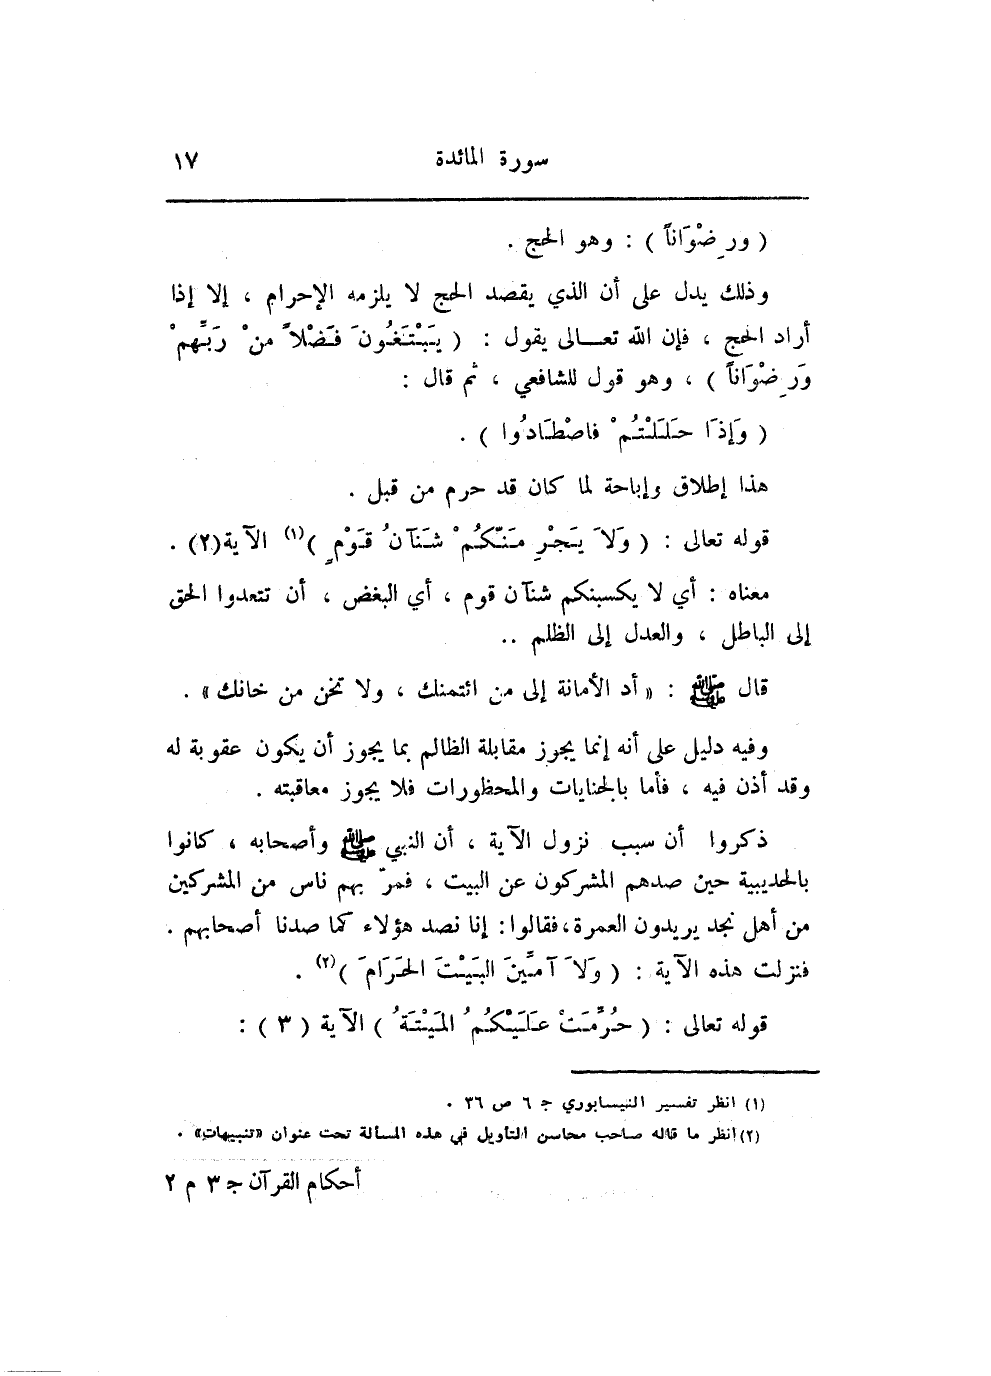 سورة المائدة ١٧
( ورِضْوَاناً ) : وهو الحج .
وذلك يدل على أن الذي يقصد الحج لا يلزمه الإحرام ، إلا إذا
أراد الحج ، فإن الله تعـــالى يقول : ( يَبْتَغُونَ فَضْلاً منْ رَبِّهِمْ
وَرِضْوَاناً ) ، وهو قول للشافعي ، ثم قال :
( وَإذَا حَلَلْتُمْ فاصْطَادُوا ) .
هذا إطلاق وإباحة لما كان قد حرم من قبل .
قوله تعالى : ( وَلاَ يَجْرِمَنّكُمْ شَنَآنُ قَوْمٍ )(١) الآية(٢) .
معناه : أي لا يكسبنكم شنآن قوم ، أي البغض ، أن تتعدوا الحق
إلى الباطل ، والعدل إلى الظلم ..
قال ﷺ : « أد الأمانة إلى من ائتمنك ، ولا تخن من خانك» .
وفيه دليل على أنه إنما يجوز مقابلة الظالم بما يجوز أن يكون عقوبة له
وقد أذن فيه ، فأما بالجنايات والمحظورات فلا يجوز معاقبته .
ذكروا أن سبب نزول الآية ، أن النبي ﷺ وأصحابه ، كانوا
بالحديبية حين صدهم المشركون عن البيت ، فمرّ بهم ناس من المشركين
من أهل نجد يريدون العمرة،فقالوا: إنا نصد هؤلاء كما صدنا أصحابهم .
فنزلت هذه الآية : ( وَلاَ آمِّينَ البَيْتَ الحَرَامَ )(٢) .
قوله تعالى : ( حُرِّمَتْ عَلَيْكُمُ المَيْتَةُ ) الآية ( ٣ ) :
(١) انظر تفسير النيسابوري جـ ٦ ص ٣٦ .
(٢)انظر ما قاله صاحب محاسن التأويل في هذه المسألة تحت عنوان «تنبيهات» .
أحكام القرآن جـ ٣ م ٢